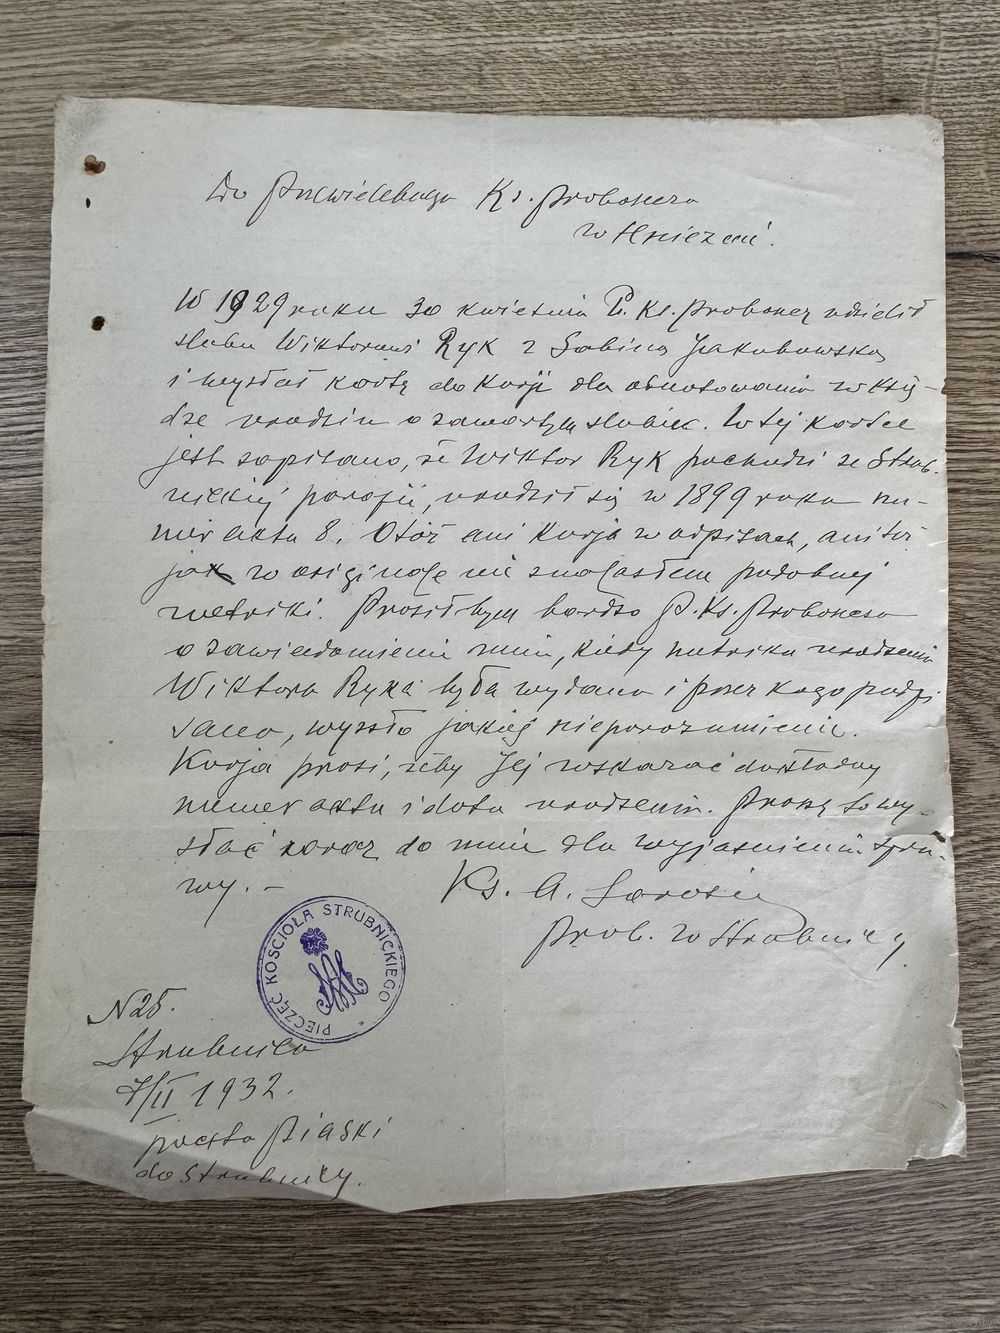 Do Przewielebnego Ks. Proboszcza
w Hnieznie.
W 1929 roku 30 kwietnia P. Ks. Proboszcz udzielił
ślubu Wiktorowi Ryk z Sabiną Jakubowską
i wysłał kartę do Kurji dla odnotowania w księ-
dze urodzin o zawartym ślubie. W tej kartce
jest zapisano, że Wiktor Ryk pochodzi ze Strub-
nickiej parafii, urodził się w 1899 roku nu-
mer aktu 8. Otóż ani Kurja w odpisach, ani też
ja w oryginale nie znalazłem podobnej
metryki. Prosiłbym bardzo P. Ks. Proboszcza
o zawiadomienie mnie, kiedy metryka urodzenia
Wiktora Ryka była wydana i przez kogo podpi
sana, wyszło jakieś nieporozumienie.
Kurja prosi, żeby Jej wskazać dokładny
numer aktu i data urodzenia. Proszę to wy-
słać zaraz do mnie dla wyjaśnienia spra-
wy. -
Ks. A.
Prob. w Strubnicy
PIECZĘĆ KOŚCIOŁA STRUBNICKIEGO
N 25.
Strubnica
7/II 1932.
poczta Piaski
do Strubnicy.